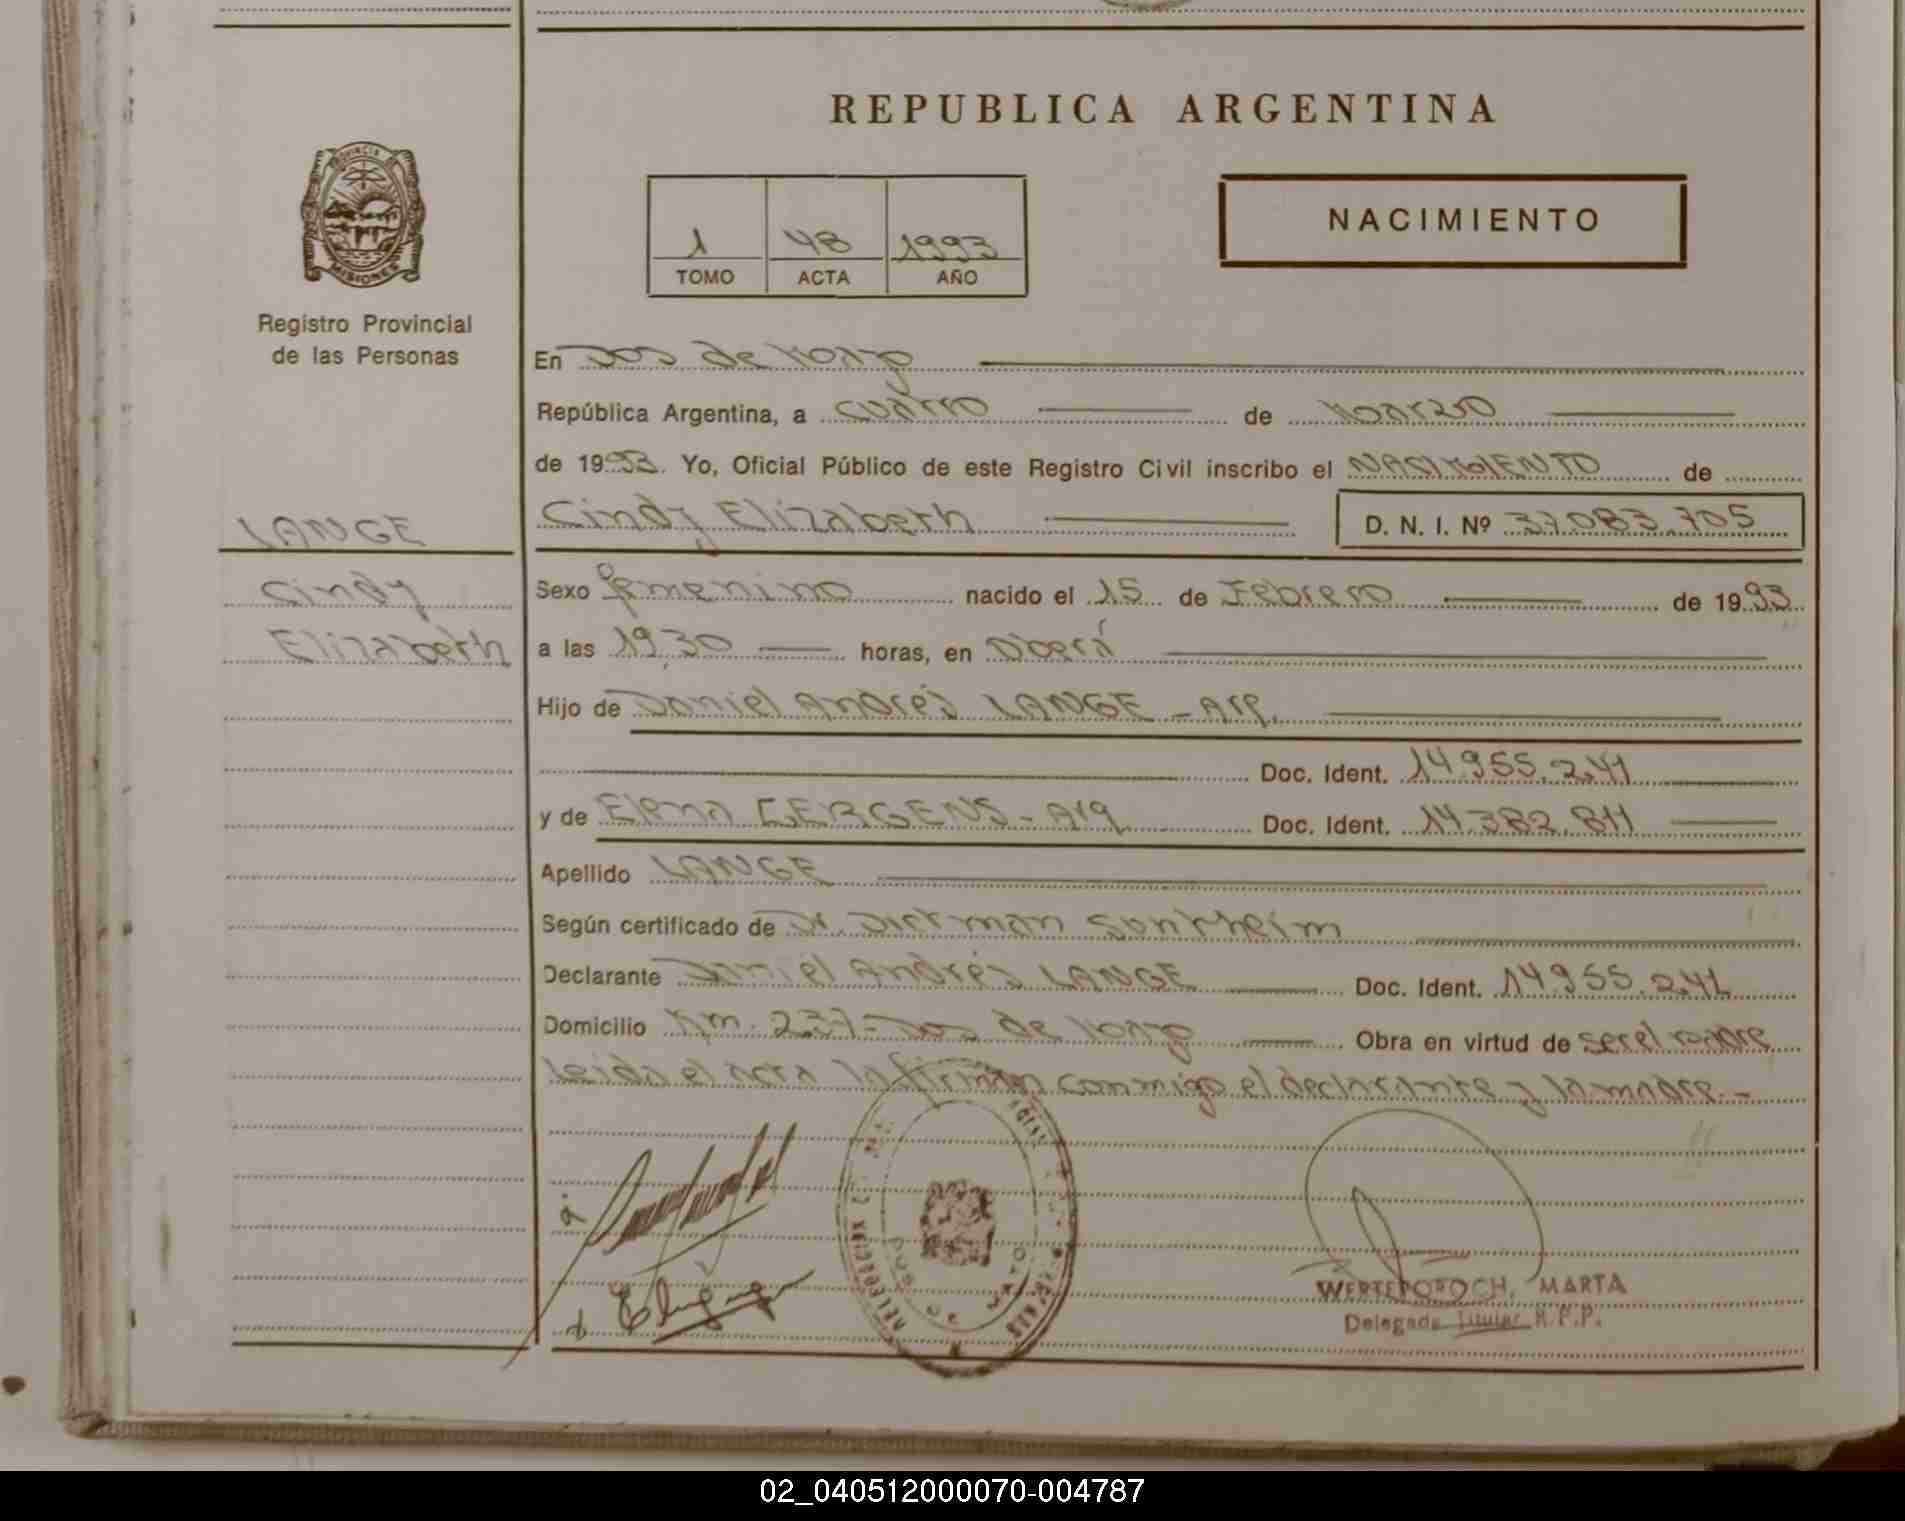 REPUBLICA ARGENTINA
PROVINCIA DE
MISIONES
Registro Provincial
de las Personas
1 48 1993
TOMO ACTA AÑO
NACIMIENTO
En Dos de Mayo
República Argentina, a cuatro de Marzo
de 1993. Yo, Oficial Público de este Registro Civil inscribo el NACIMIENTO de
LANGE
Cindy Elizabeth D. N. I. Nº 37.083.705
Cindy
Elizabeth
Sexo femenino nacido el 15 de Febrero de 1993
a las 19,30 horas, en Oberá
Hijo de Daniel Andrés LANGE - Arg.
Doc. Ident. 14.955.241
y de Elena GERGENS - Arg Doc. Ident. 14.382.811
Apellido LANGE
Según certificado de Dr. Dickman Sonkheim
Declarante Daniel Andrés LANGE Doc. Ident. 14.955.241
Domicilio Km. 237 - Dos de Mayo Obra en virtud de ser el padre
Leida el acta la firman conmigo el declarante y la madre. -
DOS DE MAYO
MISIONES
WERTEPOROCH, MARTA
Delegada Titular R.P.P.
02_040512000070-004787